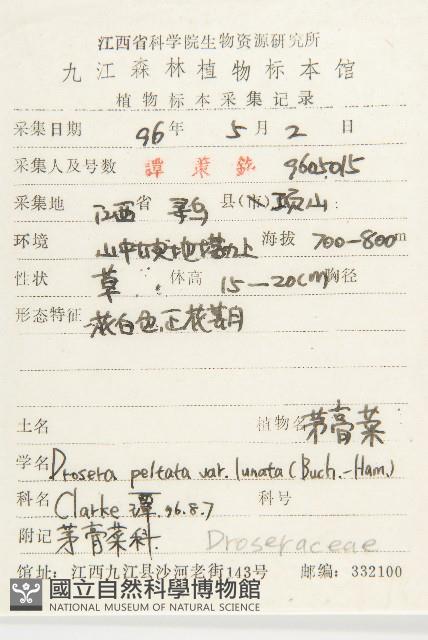 江西省科学院生物资源研究所
九江森林植物标本馆
植物标本采集记录
采集日期 96年 5月 2日
采集人及号数 譚策銘 9605015
采集地 江西省 寻乌县(市)项山
环境 山中 地 上 海拔 700-800m
性状 草 体高 15-20cm 胸径
形态特征 花白色,正花期
土名 植物名 茅膏菜
学名 Drosera peltata var. lunata (Buch.-Ham.)
科名 Clarke 譚.96.8.7 科号
附记 茅膏菜科. Droseraceae
馆址:江西九江县沙河老街143号 邮编:332100
國立自然科學博物館
NATIONAL MUSEUM OF NATURAL SCIENCE